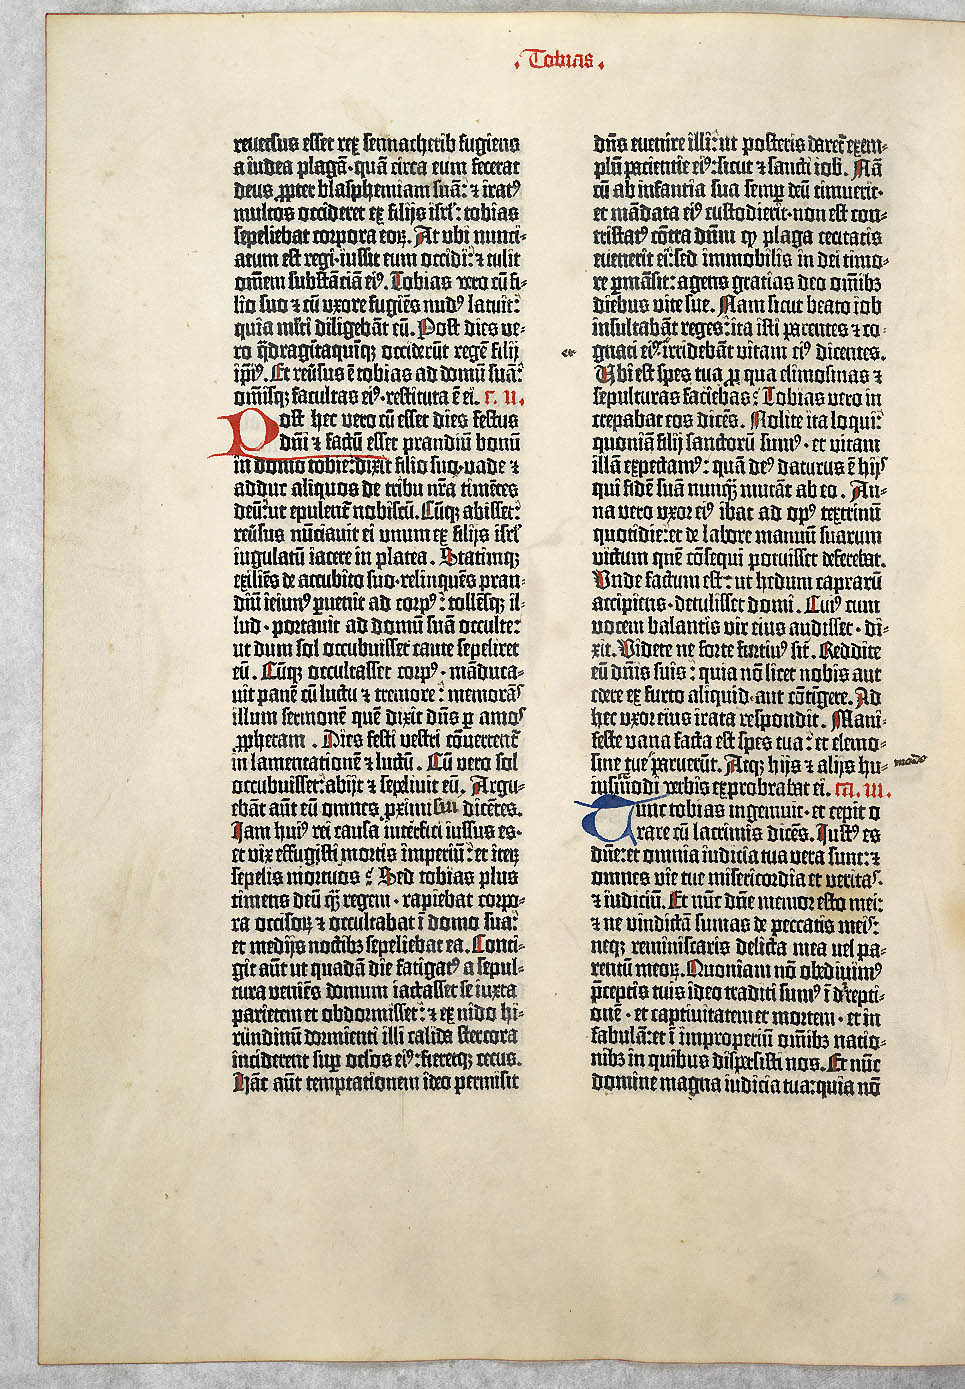 Tobias
reuersus esset rex sennacherib fugiens
a iudea plagā·quā circa eum fecerat
deus ꝓpter blasphemiam suā: ⁊ iratꝰ
multos occideret ex filijs isrl̄: tobias
sepeliebat corpora eoꝝ. At ubi nunci-
atum est regi·iussit eum occidi: ⁊ tulit
om̄em substātiā eiꝰ. Tobias vero cū fi-
lio suo ⁊ cū uxore fugiēs nudꝰ latuit:
quia ml̄ti diligebāt eū. Post dies ve-
ro q̄dragītaquīqꝫ occiderūt regē filij
ip̄iꝰ. Et reūsus ē tobias ad domū suā:
om̄isqꝫ facultas eiꝰ·restituta ē ei. c. II.
Post hec vero cū esset dies festus
dn̄i ⁊ factū esset prandiū bonū
in domo tobie: dixit filio suo·vade ⁊
adduc aliquos de tribu nr̄a timētes
deū: ut epulent̄ nobiscū. Cūqꝫ abisset:
reūsus nūciavit ei unum ex filijs isrl̄
iugulatū iacere in platea. Statimqꝫ
exiliēs de accubito suo·relinquēs pran-
diū ieiunꝰ ꝑuenit ad corpꝰ: tollēsqꝫ il-
lud·portauit ad domū suā occulte:
ut dum sol occubuisset caute sepeliret
eū. Cūqꝫ occultasset corpꝰ·māduca-
uit panē cū luctu ⁊ tremore: memorās
illum sermonē quē dixit dn̄s ꝑ amos
ꝓphetam. Dies festi vestri cōuertent̄
in lamentationē ⁊ luctū. Cū vero sol
occubuisset: abijt ⁊ sepeliuit eū. Argu-
ebāt aūt eū omnes ꝓximi sui dicētes.
Iam huiꝰ rei causa īterfici iussus es·
et vix effugisti mortis imperiū: et iteꝝ
sepelis mortuos? Sed tobias plus
timens deū q̄ꝫ regem·rapiebat corpo-
ra occisoꝝ ⁊ occultabat ī domo sua:
et medijs noctibꝫ sepeliebat ea. Conti-
git aūt ut quadā die fatigatꝰ a sepul-
tura veniēs domum iactasset se iuxta
parietem et obdormisset: ⁊ ex nido hi-
rundinū dormienti illi calida stercora
inciderent suꝑ oclos eiꝰ: fieretqꝫ cecus.
Hāc aūt temptationem ideo permisit
dn̄s euenire illi: ut posteris daret̄ exem-
plū pacientie eiꝰ: sicut ⁊ sancti iob. Nā
cū ab infantia sua semꝑ deū timuerit·
et mādata eiꝰ custodierit·non est con-
tristatꝰ cōtra deum qꝫ plaga cecitatis
euenerit ei: sed immobilis in dei timo-
re ꝑmāsit: agens gratias deo om̄ibꝫ
diebus vite sue. Nam sicut beato iob
insultabāt reges: ita isti parentes ⁊ co-
et
gnati eiꝰ: irridebāt vitam eiꝰ dicentes.
Ubi est spes tua ꝑ qua elimosinas ⁊
sepulturas faciebas? Tobias vero in
crepabat eos dicēs. Nolite ita loqui:
quoniā filij sanctorū sumꝰ·et vitam
illā expectamꝰ: quā deꝰ daturus ē hijs
qui fidē suā nunq̄ꝫ mutāt ab eo. An-
na vero uxor eiꝰ ibat ad opꝰ textrinū
quotidie: et de labore manuū suarum
victum quē cōsequi potuisset deferebat.
Unde factum est: ut hedum caprarū
accipiens·detulisset domi. Cuiꝰ cum
vocem balantis vir eius audisset·di-
xit. Videte ne forte furtiuꝰ sit. Reddite
eū dn̄is suis: quia nō licet nobis aut
edere ex furto aliquid·aut cōtīgere. Ad
hec uxor eius irata respondit. Mani-
feste vana facta est spes tua: et elemo-
sine tue ꝑaruerūt. Atqꝫ hijs ⁊ alijs hu-
modo
iusm̄odi verbis exprobrabat ei. ca. III.
Tunc tobias ingemuit·et cepit o
rare cū lacrimis dicēs. Iustꝰ es
dn̄e: et omnia iudicia tua vera sunt: ⁊
omnes vie tue misericordia et veritas·
⁊ iudiciū. Et nūc dn̄e memor esto mei:
⁊ ne vindictā sumas de peccatis meis:
neqꝫ reminiscaris delicta mea vel pa-
rentū meoꝝ. Quoniam nō obediuimꝰ
p̄ceptis tuis ideo traditi sumꝰ ī direpti-
onē·et captiuitatem et mortem·et in
fabulā: et ī improperiū om̄ibꝫ natio-
nibꝫ in quibus dispersisti nos. Et nūc
domine magna iudicia tua: quia nō